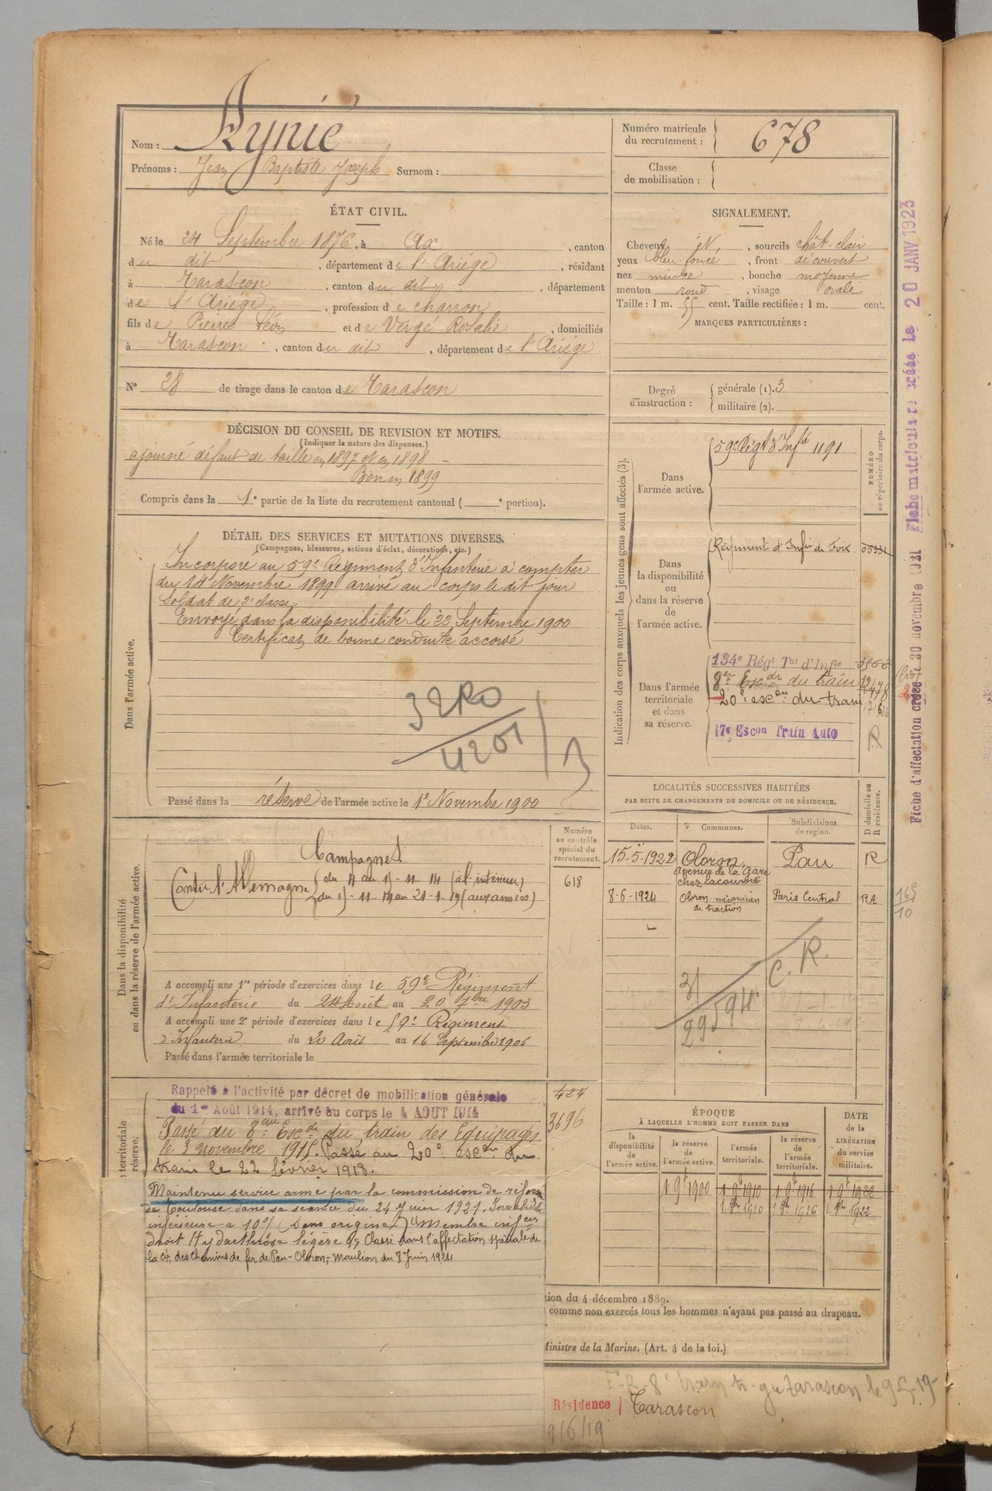 Nom :
Prénoms : Jean Baptiste Joseph Surnom :
Numéro matricule du recrutement : 678
Classe de mobilisation :
ÉTAT CIVIL.
Né le 24 Septembre 1876, à Ax, canton
du dit, département de l'Ariège, résidant
à Tarascon, canton du dit, département
de l'Ariège, profession de charron
fils de Pierre Léon et de Vergé Rosalie, domiciliés
à Tarascon, canton du dit, département de l'Ariège
N° 28 de tirage dans le canton de Tarascon
SIGNALEMENT.
Cheveux, sourcils chât-clair
yeux bleu foncé, front découvert
nez mince, bouche moyenne
menton rond, visage ovale
Taille : 1 m. 55 cent. Taille rectifiée : 1 m. cent.
MARQUES PARTICULIÈRES :
Degré d'instruction : générale (1). 3
militaire (2).
DÉCISION DU CONSEIL DE REVISION ET MOTIFS.
(Indiquer la nature des dispenses.)
ajourné défaut de taille en 1897 et en 1898
Bon en 1899
Compris dans la 1e partie de la liste du recrutement cantonal ( e portion).
DÉTAIL DES SERVICES ET MUTATIONS DIVERSES.
(Campagnes, blessures, actions d'éclat, décorations, etc.)
Dans l'armée active.
Incorporé au 59e Régiment d'Infanterie à compter
du 14 Novembre 1899 arrivé au corps le dit jour
Soldat de 2e classe
Envoyé dans la disponibilité le 22 Septembre 1900
Certificat de bonne conduite accordé
Passé dans la réserve de l'armée active le 1er Novembre 1900
Indication des corps auxquels les jeunes gens sont affectés (3).
NUMÉRO au répertoire du corps.
Dans l'armée active.
59e Régt d'Infie 1191
Dans la disponibilité ou dans la réserve de l'armée active.
Régiment d'Infie de Foix
Dans l'armée territoriale et dans sa réserve.
134e Régt Tal d'Infie
8e Escon du train
20e escon du train
17e Escon Train Auto
R
Fiche d'affectation créée le 30 novembre 1921
Fiche matricule créée le 20 JANV 1923
LOCALITÉS SUCCESSIVES HABITÉES
PAR SUITE DE CHANGEMENTS DE DOMICILE OU DE RÉSIDENCE.
Dates. Communes. Subdivisions de région. D domicile ou R résidence.
15-5-1922 Oloron avenue de la Gare chez Pau R
8-6-1924 Oloron mécanicien de traction Paris Central RA
C. R.
Dans la disponibilité ou dans la réserve de l'armée active.
Numéro au contrôle spécial du recrutement.
618
Campagnes
Contre l'Allemagne
A accompli une 1re période d'exercices dans le 59e Régiment
d'Infanterie du 24 Août au 20 7bre 1903
A accompli une 2e période d'exercices dans le 59e Régiment
d'Infanterie du 20 Août au 16 Septembre 1906
Passé dans l'armée territoriale le
territoriale
réserve.
Rappelé à l'activité par décret de mobilisation générale
du 1er Août 1914, arrivé au corps le 4 AOUT 1914
Passé au 8eme Escon du train des Equipages
le 3 novembre 1915. Passé au 20e escon du
train le 22 février 1918.
3696
Maintenu service armé par la commission de réforme
de Toulouse dans sa séance du 24 juin 1921. Invalidité
inférieure à 10% (sans origine)
Classé dans l'affectation spéciale de
la Cie des Chemins de fer de Pau-Oloron-Mauléon du 8 juin 1924
ÉPOQUE
À LAQUELLE L'HOMME DOIT PASSER DANS
la disponibilité de l'armée active.
la réserve de l'armée active.
l'armée territoriale.
la réserve de l'armée territoriale.
DATE de la LIBÉRATION du service militaire.
1 9e 1900
ion du 4 décembre 1889.
comme non exercés tous les hommes n'ayant pas passé au drapeau.
Ministre de la Marine. (Art. 4 de la loi.)
Résidence Tarascon
9/6/19